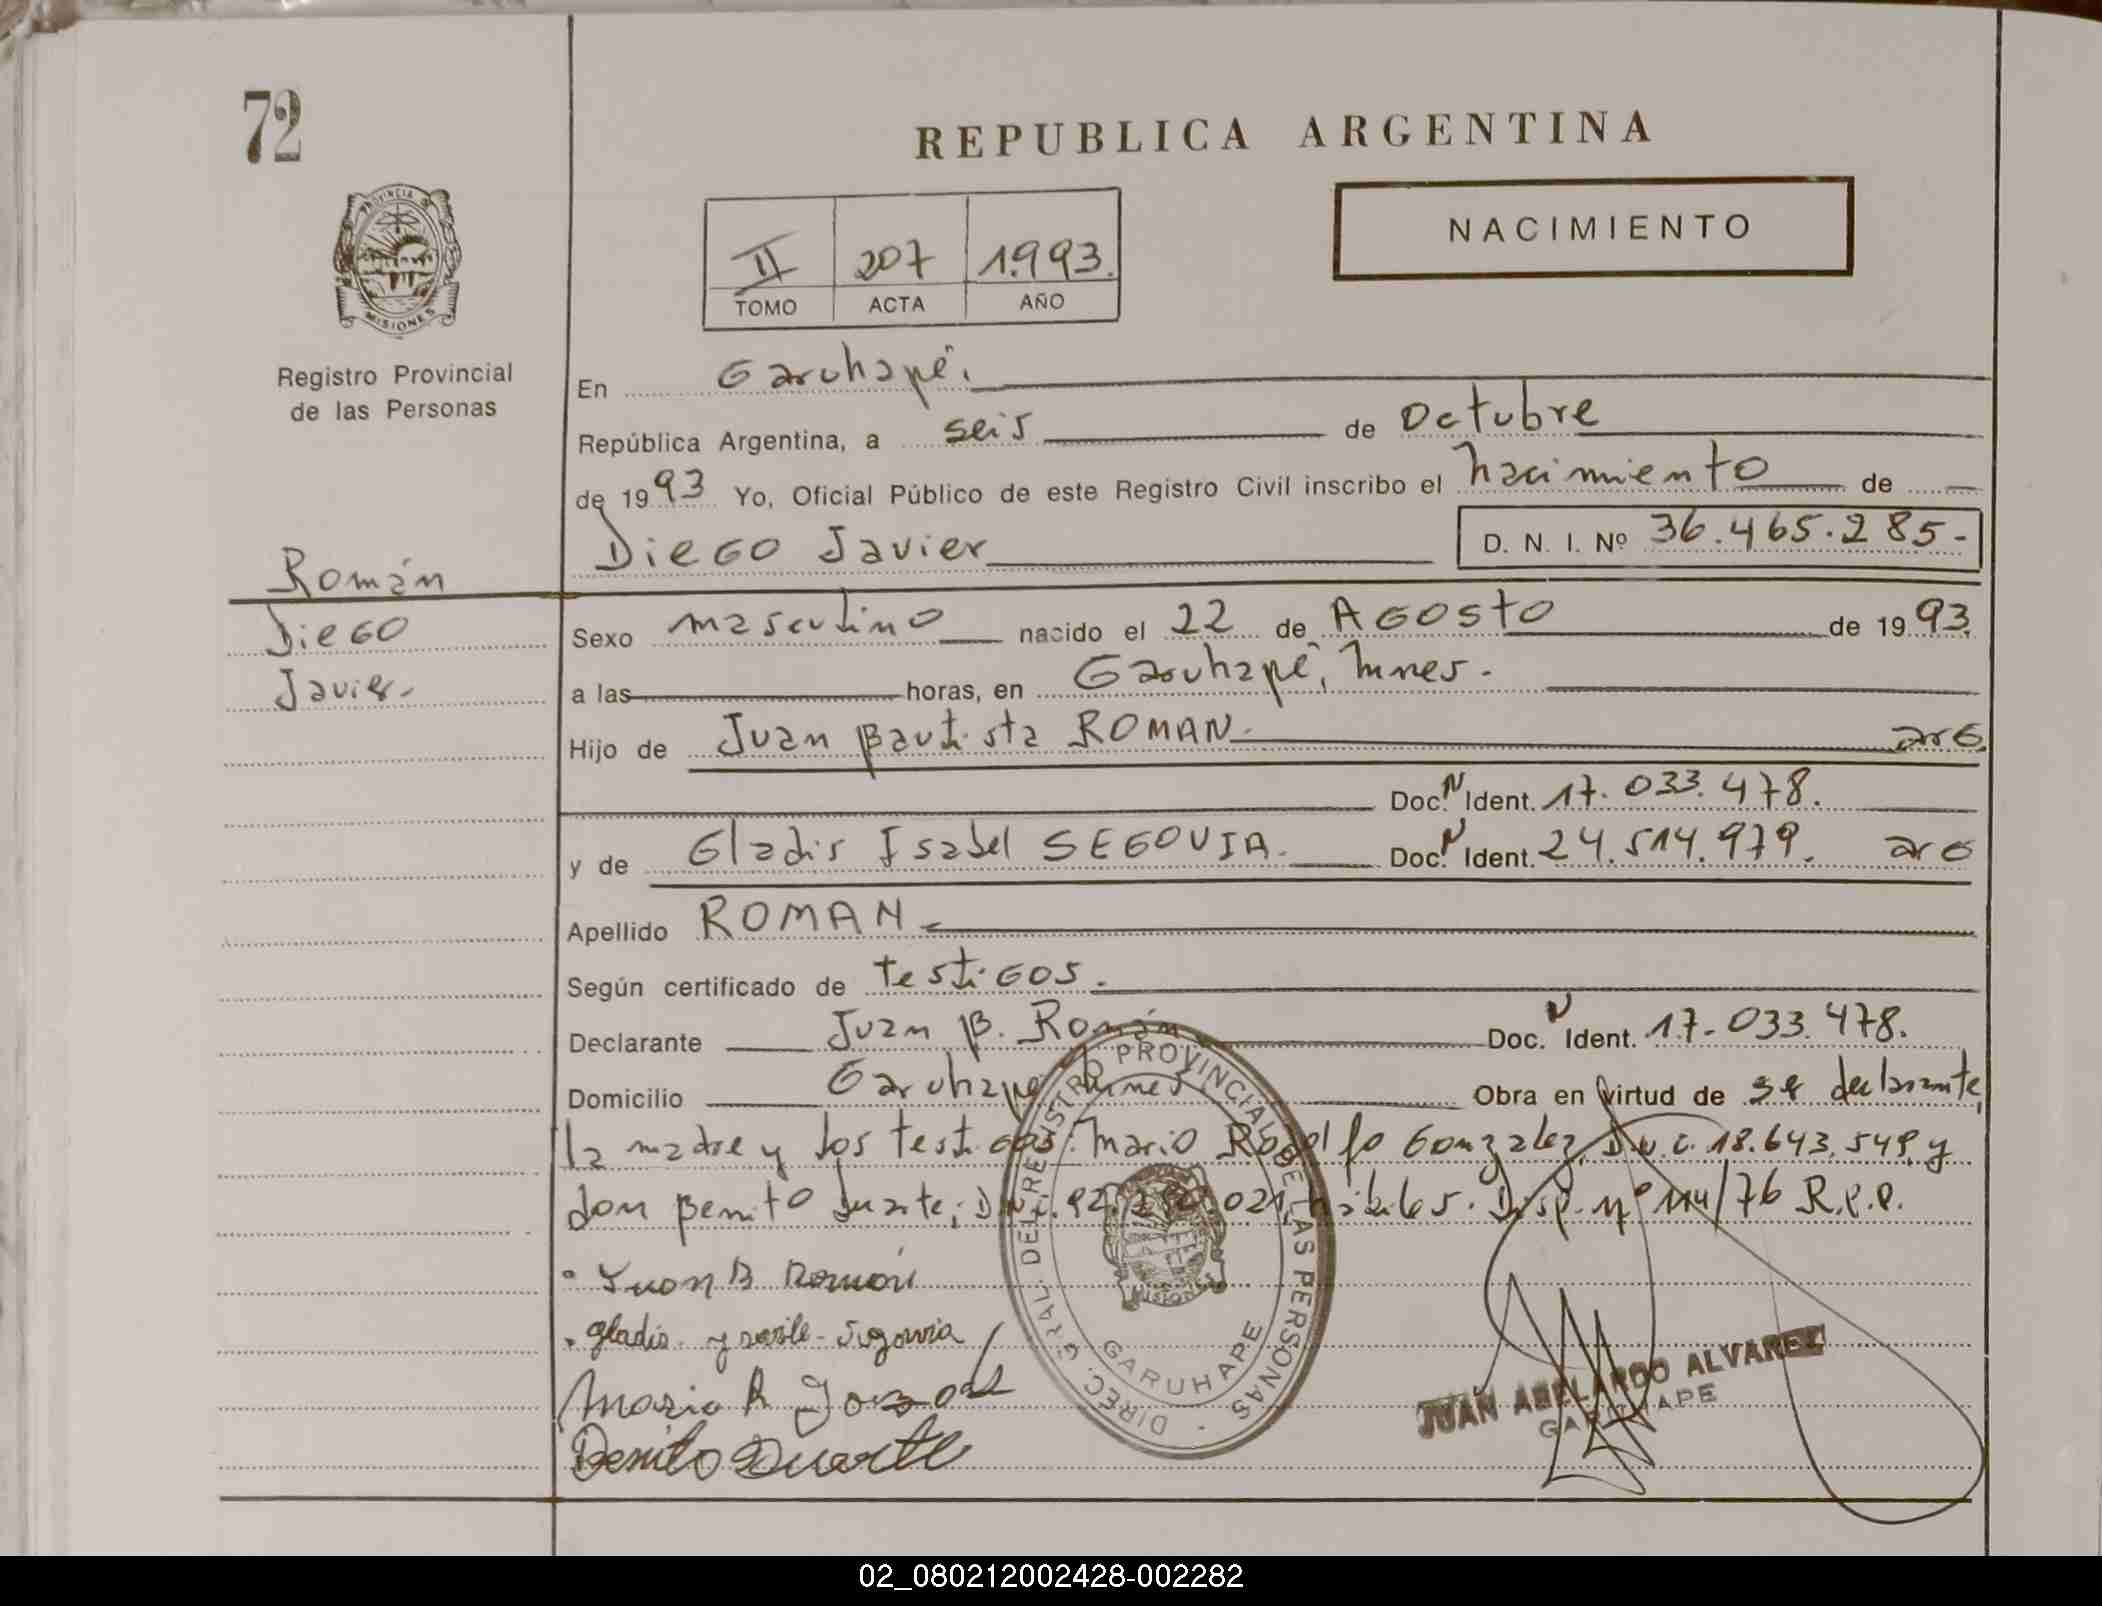 72
REPUBLICA ARGENTINA
PROVINCIA DE
MISIONES
NACIMIENTO
II 207 1.993.
TOMO ACTA AÑO
Registro Provincial
de las Personas
En Garuhapé.
República Argentina, a seis de Octubre
de 1993 Yo, Oficial Público de este Registro Civil inscribo el nacimiento de
Diego Javier D. N. I. Nº 36.465.285-
Román
Diego
Javier.
Sexo masculino nacido el 22 de Agosto de 1993.
a las horas, en Garuhapé, Mnes.
Hijo de Juan Bautista ROMAN. arg.
Doc. N Ident. 17.033.478.
y de Gladis Isabel SEGOVIA. Doc. N Ident. 24.514.979. arg
Apellido ROMAN
Según certificado de testigos.
Declarante Juan B. Román Doc. N Ident. 17.033.478.
Domicilio Garuhapé Mnes Obra en virtud de ser declarante,
la madre y los testigos: Mario Rodolfo Gonzalez, D.N.I. 18.643.549, y
don Benito Duarte, D.N.I. 92. .021, hábiles. Disp. nº 114/76 R.P.P.
Juan B Román
gladis Segovia
Mario R
Benito Duarte
DIREC. GRAL. DEL REGISTRO PROVINCIAL DE LAS PERSONAS
MISIONES
GARUHAPE
JUAN ABELARDO ALVAREZ
GARUHAPE
02_080212002428-002282